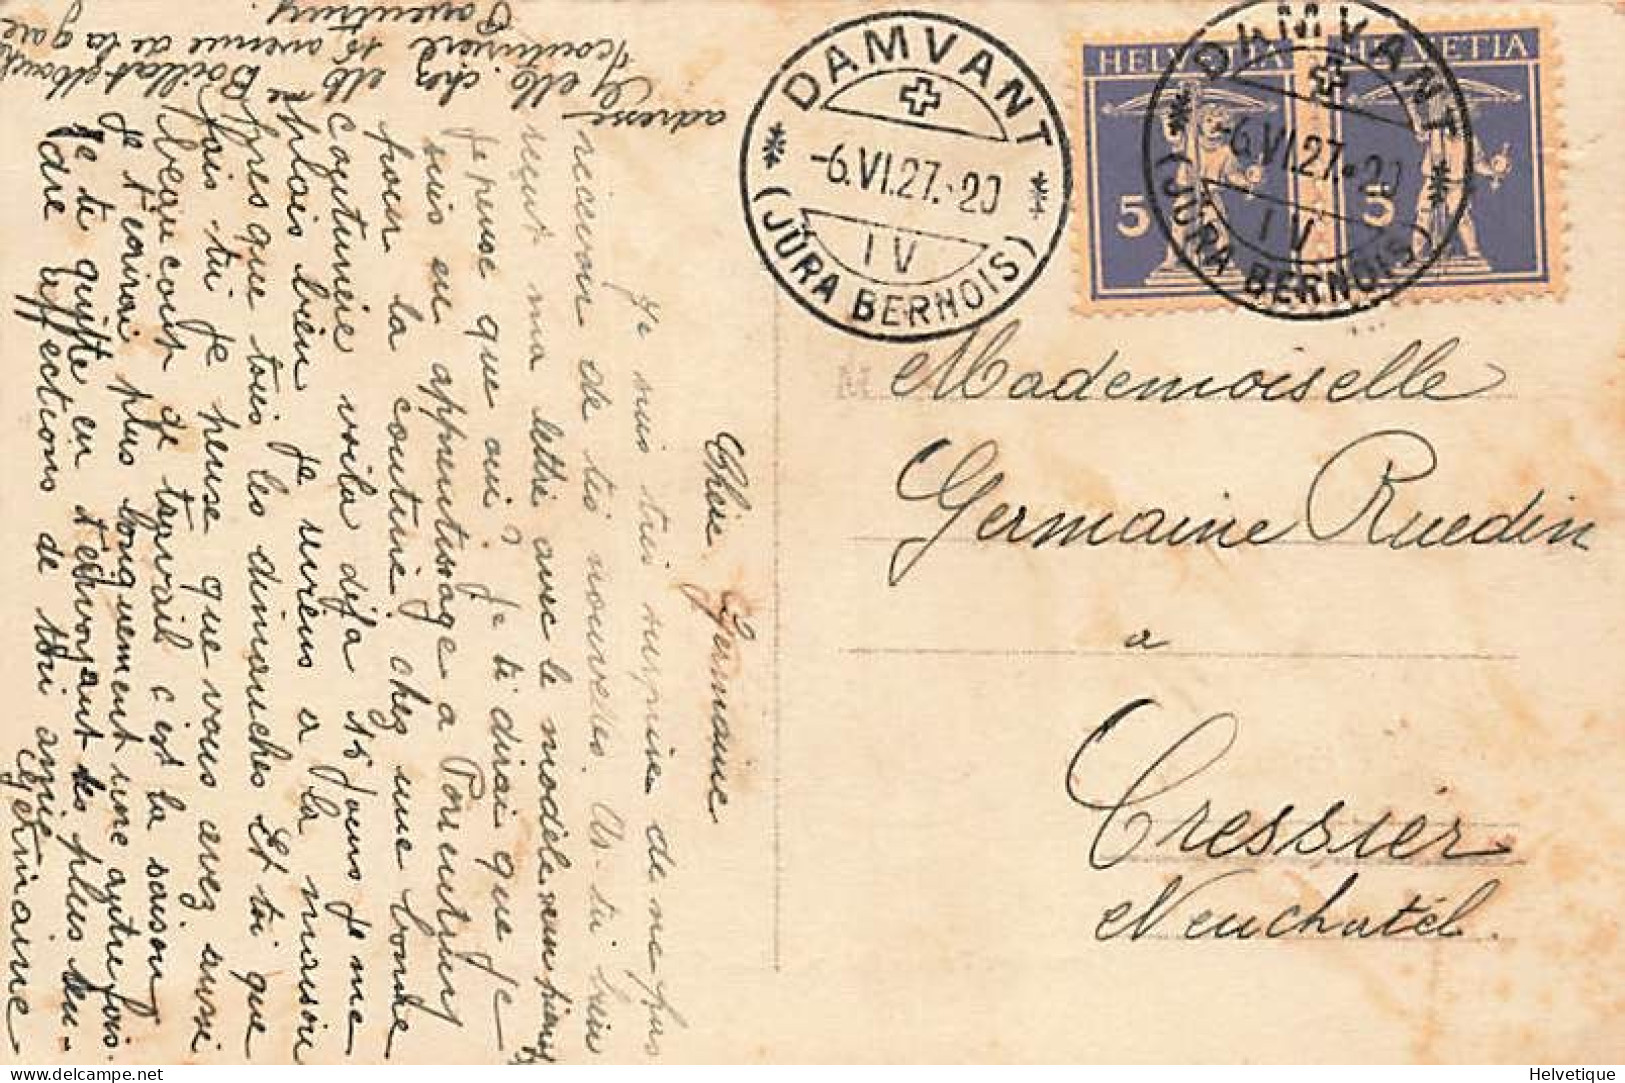 Chère Germaine
Je suis très surprise de ne pas
recevoir de tes nouvelles. As-tu bien
reçut ma lettre avec le modèle
Je pense que oui? Je te dirai que je
suis en apprentissage a Porrentruy
pour la couture chez une bonne
couturière voila déja 15 jours je me
plais bien je reviens a la maison
presque tous les dimanches Et toi que
fais-tu je pense que vous avez aussi
beaucoup de travail c'est la saison
Je t'écrirai plus longuement une autre fois.
Je te quitte en t'envoyant les plus
affections de ton amie
Germaine
adresse
G elb. chez Mme Boillat
couturière 15 avenue de la gare
Porrentruy.
DAMVANT
-6.VI.27.-20
IV
(JURA BERNOIS)
HELVETIA
5
HELVETIA
5
DAMVANT
-6.VI.27.-20
IV
(JURA BERNOIS)
M
Mademoiselle
Germaine Ruedin
à
Cressier
Neuchatél.
delcampe.net
Helvetique